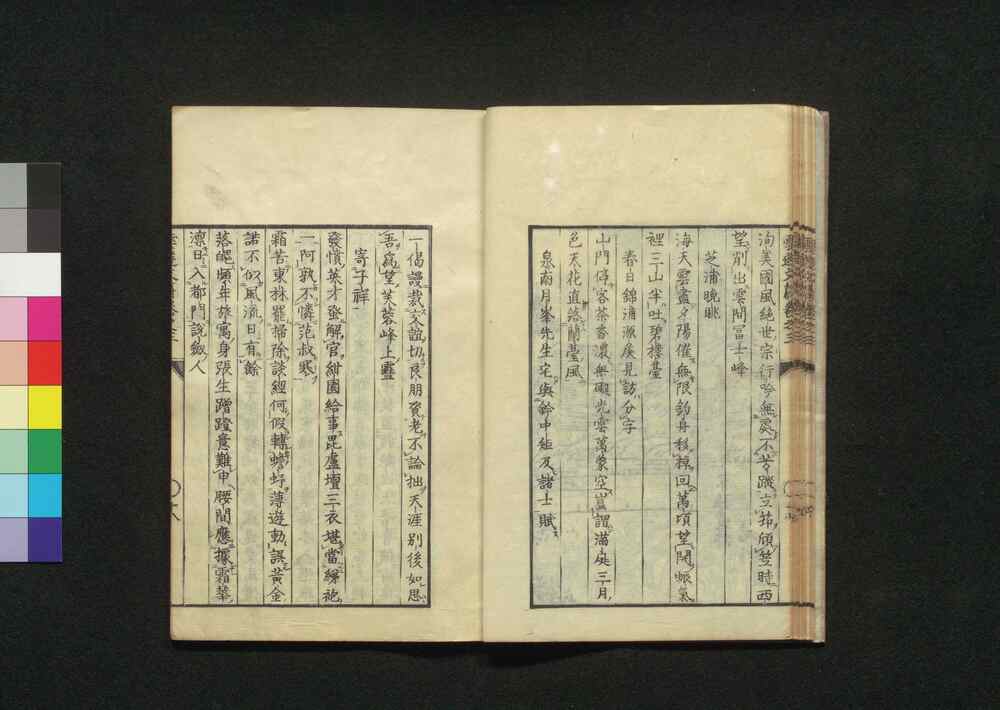 洵美國風絶世宗行吟無處不苦蹤立筇頎笠時西
望別出雲間冨士峰
芝浦晚眺
海天雲盡夕陽催無限釣舟移棹回萬頃望開蜃氣
裡三山半吐碧樓臺
春日錦浦源矦見訪分字
山門停客茶香濃無礙光雲萬象空豈謂滿庭三月
色天花直落蘭臺風
泉南月峯先生宅與鈴中矩及諸士賦
一偈謾裁交誼切良朋資老不論拙天涯別後如思
吾為望芙蓉峰上雪
寄子祥
發憤英才蚤解官紺園給事毘盧壇三衣堪當綈袍
一阿孰不憐范叔寒
霜苦東林罷掃除談經何假轉蟾蜍薄遊動誤黃金
諾不似風流日有餘
落魄頻年旅寓身張生蹭蹬意難申腰間應據霜華
凛日入都門說劔人